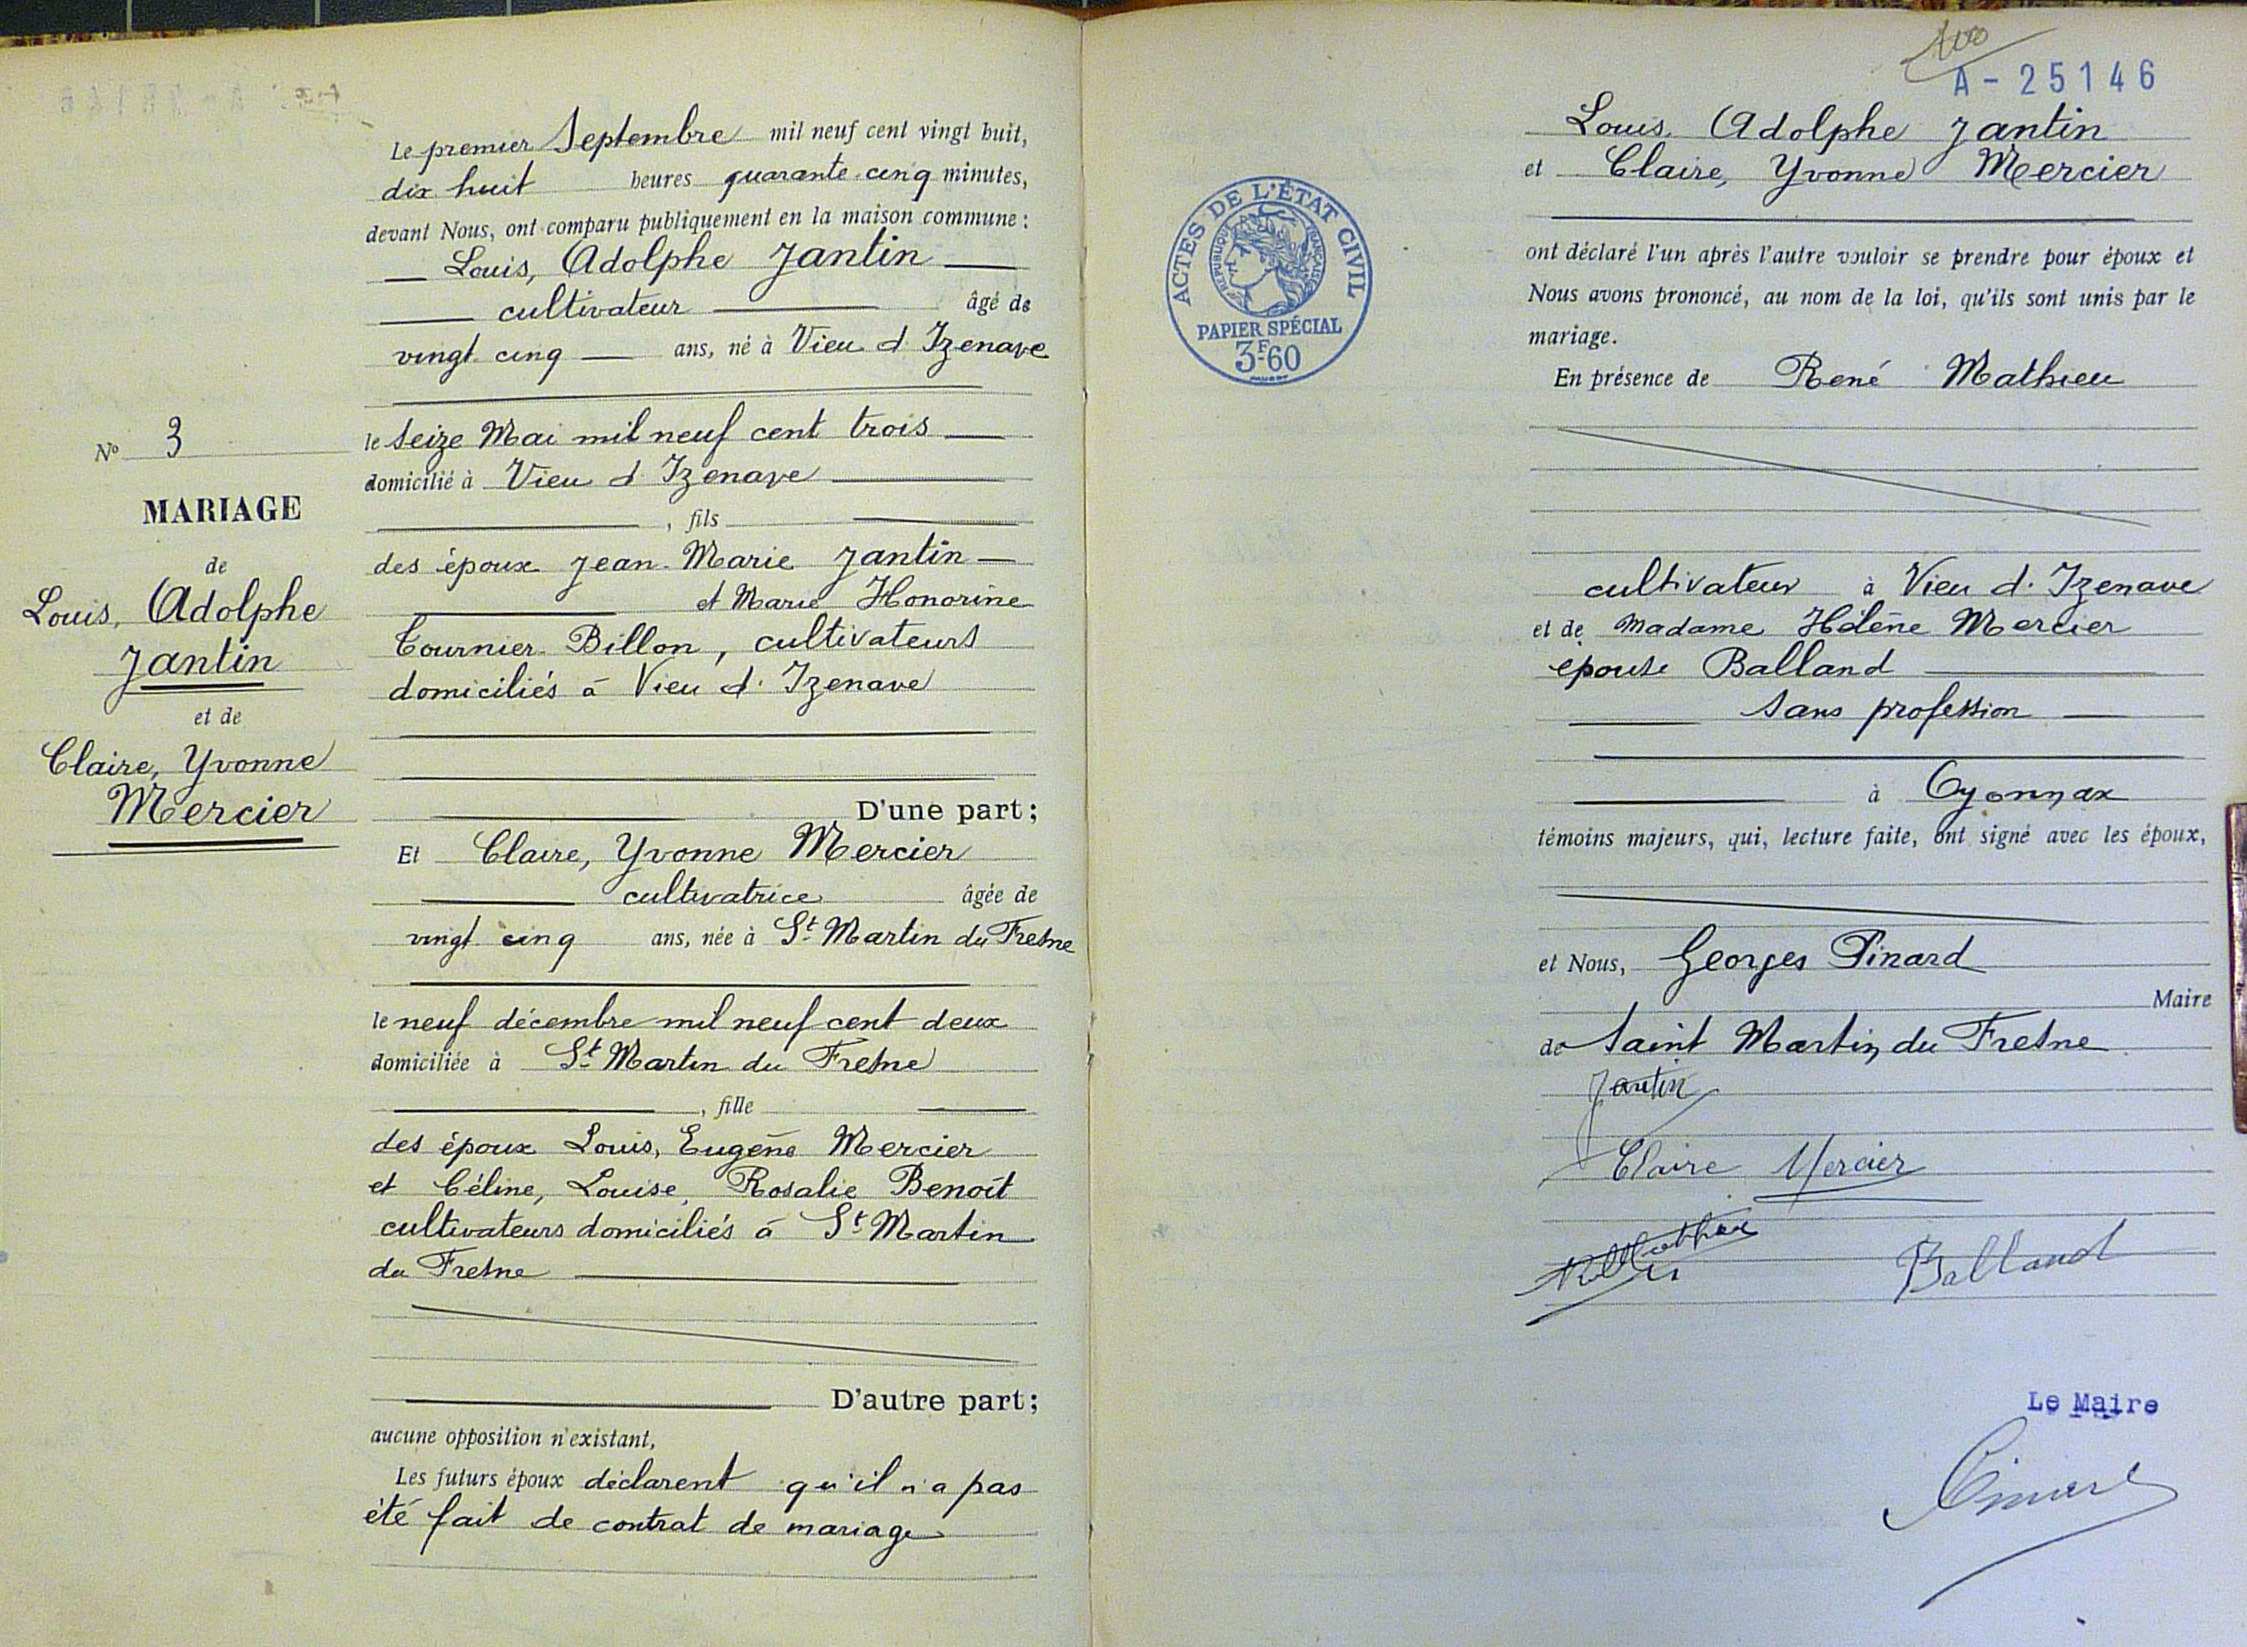 Nº 3
MARIAGE
de
Louis, Adolphe
Jantin
et de
Claire, Yvonne
Mercier
Le premier Septembre mil neuf cent vingt huit,
dix huit heures quarante-cinq minutes,
devant Nous, ont comparu publiquement en la maison commune :
Louis, Adolphe Jantin
cultivateur âgé de
vingt cinq ans, né à Vieu d'Izenave
le seize Mai mil neuf cent trois
domicilié à Vieu d'Izenave
, fils
des époux Jean-Marie Jantin
et Marie Honorine
Tournier-Billon, cultivateurs
domiciliés à Vieu d'Izenave
D'une part;
Et Claire, Yvonne Mercier
cultivatrice âgée de
vingt cinq ans, née à St Martin du Fresne
le neuf décembre mil neuf cent deux
domiciliée à St Martin du Fresne
, fille
des époux Louis, Eugène Mercier
et Céline, Louise, Rosalie Benoît
cultivateurs domiciliés à St Martin
du Fresne
D'autre part;
aucune opposition n'existant,
Les futurs époux déclarent qu'il n'a pas
été fait de contrat de mariage
A-25146
ACTES DE L'ÉTAT CIVIL
RÉPUBLIQUE FRANÇAISE
PAPIER SPÉCIAL
3F60
Louis Adolphe Jantin
et Claire, Yvonne Mercier
ont déclaré l'un après l'autre vouloir se prendre pour époux et
Nous avons prononcé, au nom de la loi, qu'ils sont unis par le
mariage.
En présence de René Mathieu
cultivateur à Vieu d'Izenave
et de Madame Hélène Mercier
épouse Balland
sans profession
à Oyonnax
témoins majeurs, qui, lecture faite, ont signé avec les époux,
et Nous, Georges Pinard
Maire
de Saint Martin du Fresne
Jantin
Claire Mercier
Balland
Le Maire
Pinard